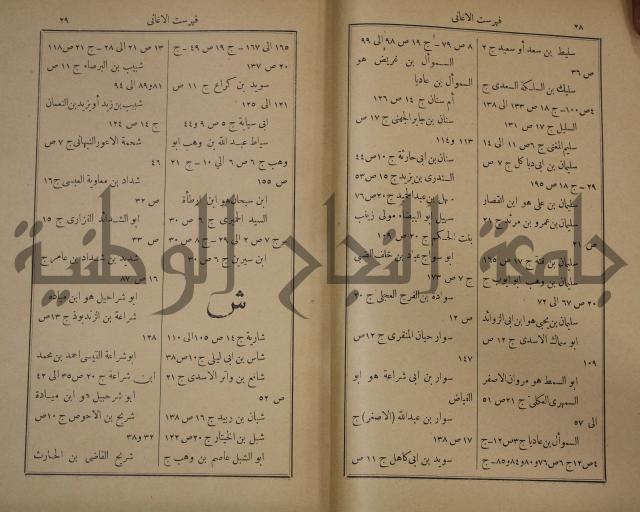 ٢٨
فهرست الاغانى
سليط بن سعد أو سعيد ج ٢
ص ٣٦
سليك بن السلكة السعدى ج
ص ١٨ ج ص ١٣٣ الى ١٣٨
السليل ج ١٧ ص ١٣١
سليم المغنى ج ٦ ص ١١ الى ١٤
سليمان بن ابى دباكل ج ٧ ص
٢٩ - ج ١٨ ص ١٩٥
سليمان بن على هو ابن القصار
سليمان بن عمرو بن مرثد ج ٢١
ص ٢١
سليمان بن قتة ج ١٧ ص ١٦٥
سليمان بن وهب ابو ايوب ج
٢٠ ص ٦٧ الى ٧٢
سليمان بن يحيى هو ابن ابى الزوائد
ابو سماك الاسدى ج ١٢ ص
١٠٩
ابو السمط هو مروان الاصغر
السمهرى العكلى ج ٢١ ص ٥١
الى ٥٧
السموأل بن عاديا ج ٣ ص ١٢ - ج
٨ ص ٧٩ - ج ١٩ ص ٩٨ الى ٩٩
السموأل بن غريض هو
السموأل بن عاديا
أم سنان ج ١٤ ص ١٢٦
سنان بن جابر الجهنى ج ١٧ ص
١١٣ و ١١٤
سنان بن ابى حارثة ج ١٠ ص ٤٤
السندرى بن يزيد ج ١٥ ص ٥٣
سهل بن عبد الحميد ج ٢٠ ص ٧٦
سهيل ابو البيضاء مولى زينب
بنت الحكم ج ٢٠ ص
ابو سواج عباد بن خلف الضبى
ج ٧ ص ١٧٣
سوادة بن الفرج العجلى ج ٢٠
ص ١٢
سوار بن حيان المنقرى ج ١٢ ص
١٤٧
سوار بن ابى شراعة هو ابو
الفياض
سوار بن عبدالله (الاصغر) ج
١٧ ص ١٣٨
سويد بن ابى كاهل ج ١١ ص
٢٩
فهرست الاغانى
١٦٥ الى ١٦٧ - ج ١٩ ص ٤٩ - ج
٢٠ ص ١٣٧
سويد بن كراع ج ١١ ص
١٢١ الى ١٢٥
ابن سيابة ج ٥ ص ٩ و ٤٤
سياط عبد الله بن وهب ابو
وهب ج ٦ ص ٦ الى ١٠ - ج ٢١
ص ١٥٥
ابن سيحان هو ابن ارطأة
السيد الحميرى ج ٦ ص ٣٠
- ج ٧ ص ٢ الى ٢٩ - ج ٨ ص ٣٠
ابن سيرين ج ٦ ص ٣٠
ش
شارية ج ١٤ ص ١٠٥ الى ١١٠
شاس بن ابى ليلى ج ١٠ ص ٣٨
شافع بن واتر الاسدى ج ٢١
ص ٥٢
شبان بن ربيد ج ١٦ ص ١٣٨
شبل بن الخيتار ج ٢٠ ص ١٢٢
ابو الشبل عاصم بن وهب ج
١٣ ص ٢١ الى ٢٨ - ج ٢١ ص ١١٨
شبيب بن البرصاء ج ١١ ص
٨١ و ٨٩ الى ٩٤
شبيب بن زيد أو يزيد بن النعمان
ج ١٤ ص ١٢٤
شحمة الاعور النبهانى ج ٧ ص
٤٦
شداد بن معاوية العبسى ج ١٦
ص ٣٢
ابو الشدائد الفزارى ج ١٥
ص ٣٣
شديد بن شداد بن عامر ج
١٦ ص ٨٧
ابو شراحيل هو ابن ميادة
شراعة بن الزندبوذ ج ١٣ ص
١٢٨
ابو شراعة القيسى احمد بن محمد
ابن شراعة ج ٢٠ ص ٣٥ الى ٤٢
ابو شرحبيل هو ابن ميادة
شريح بن الاحوص ج ١٠ ص
٣٢ و ٣٨
شريح القاضى بن الحارث
جامعة النجاح الوطنية